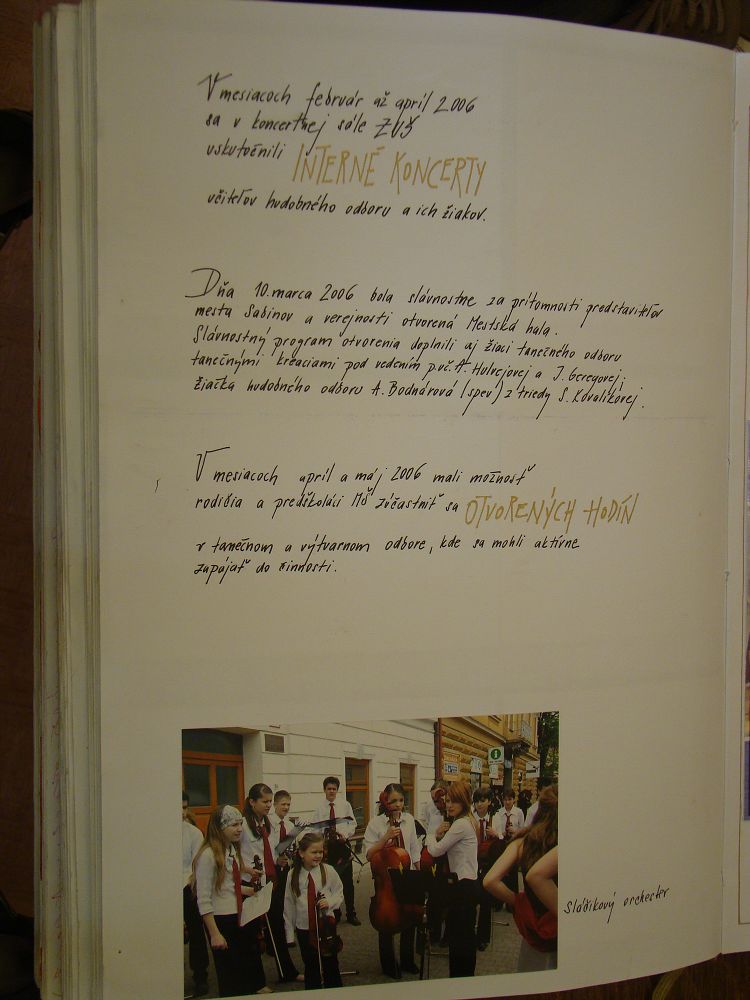 V mesiacoch február až apríl 2006
sa v koncertnej sále ZUŠ
uskutočnili INTERNÉ KONCERTY
učiteľov hudobného odboru a ich žiakov.
Dňa 10. marca 2006 bola slávnostne za prítomnosti predstaviteľov
mesta Sabinov a verejnosti otvorená Mestská hala.
Slávnostný program otvorenia doplnili aj žiaci tanečného odboru
tanečnými kreaciami pod vedením p.uč. A. Hulvejovej a J. Geregovej;
žiačka hudobného odboru A. Bodnárová (spev) z triedy S. Kovalíkovej.
V mesiacoch apríl a máj 2006 mali možnosť
rodičia a predškoláci MŠ zúčastniť sa OTVORENÝCH HODÍN
v tanečnom a výtvarnom odbore, kde sa mohli aktívne
zapájať do činnosti.
i
Sláčikový orchester